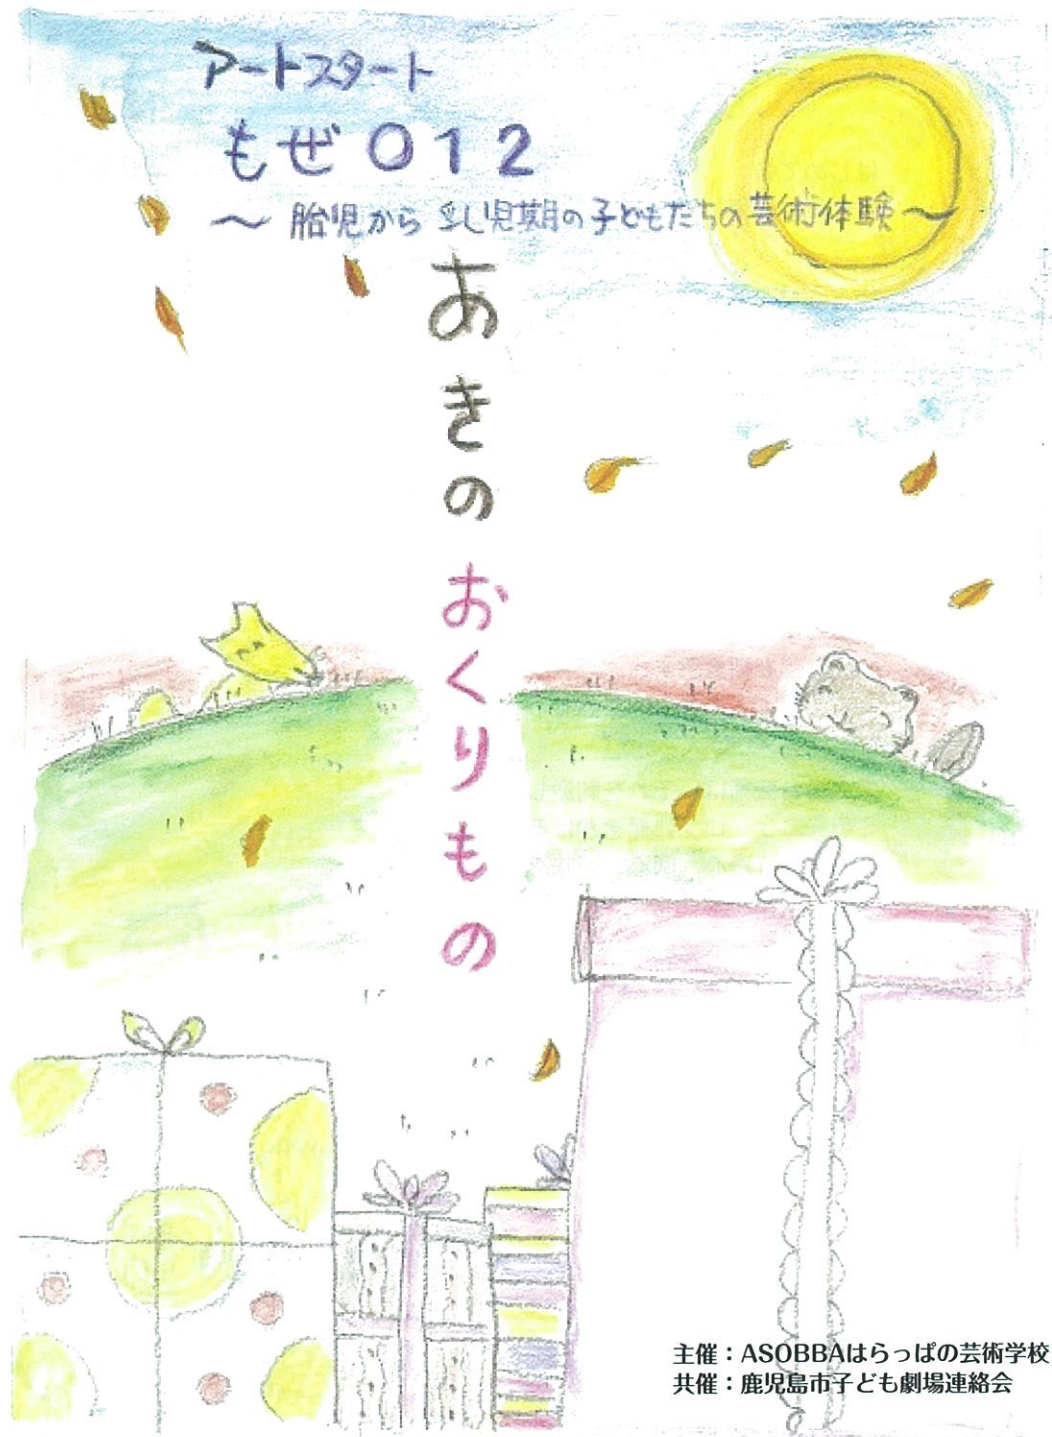 アートスタート
もぜ012
〜胎児から乳児期の子どもたちの芸術体験〜
あきのおくりもの
主催：ASOBBAはらっぱの芸術学校
共催：鹿児島市子ども劇場連絡会